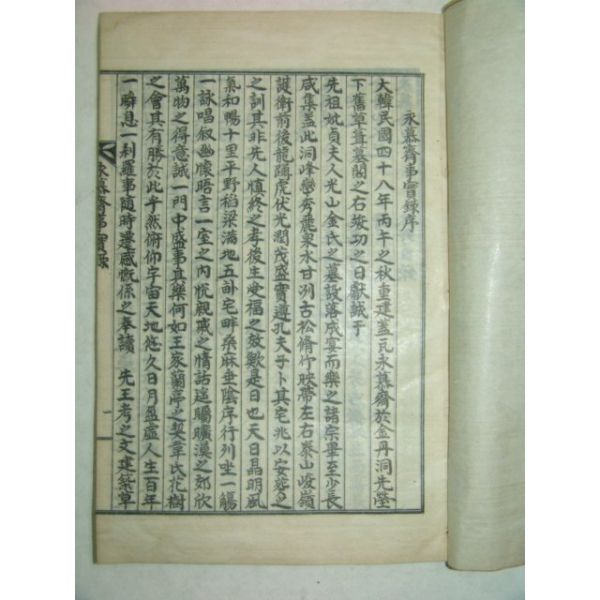 永慕齋事實錄序
大韓民國四十八年丙午之秋重建蓋瓦永慕齋於金丹洞先塋
下舊草葺墓閣之右竣功之日獻誠于
先祖妣貞夫人光山金氏之墓設落成宴而樂之諸宗畢至少長
咸集盖此洞峰巒秀麗泉水甘冽古松脩竹映帶左右泰山峻嶺
誕衛前後龍蹲虎伏光潤茂盛實遵孔夫子卜其宅兆以安葬之
之訓其非先人愼終之孝後生受福之效歟是日也天日晶明風
氣和暢十里平野稻粱滿地五計宅畔桑麻垂陰序行列坐一觴
一詠唱叙幽懷晤言一室之內悅親戚之情話逗暢曠漠之郊欣
萬物之得意誠一門中盛事其樂何如王家蘭亭之契韋氏花樹
之會其有勝於此乎然俯仰宇宙天地悠久日月盈虛人生百年
一瞬息一刹羅事隨時遷感慨係之奉讀 先王考之文建築草
永慕齋事實錄
一